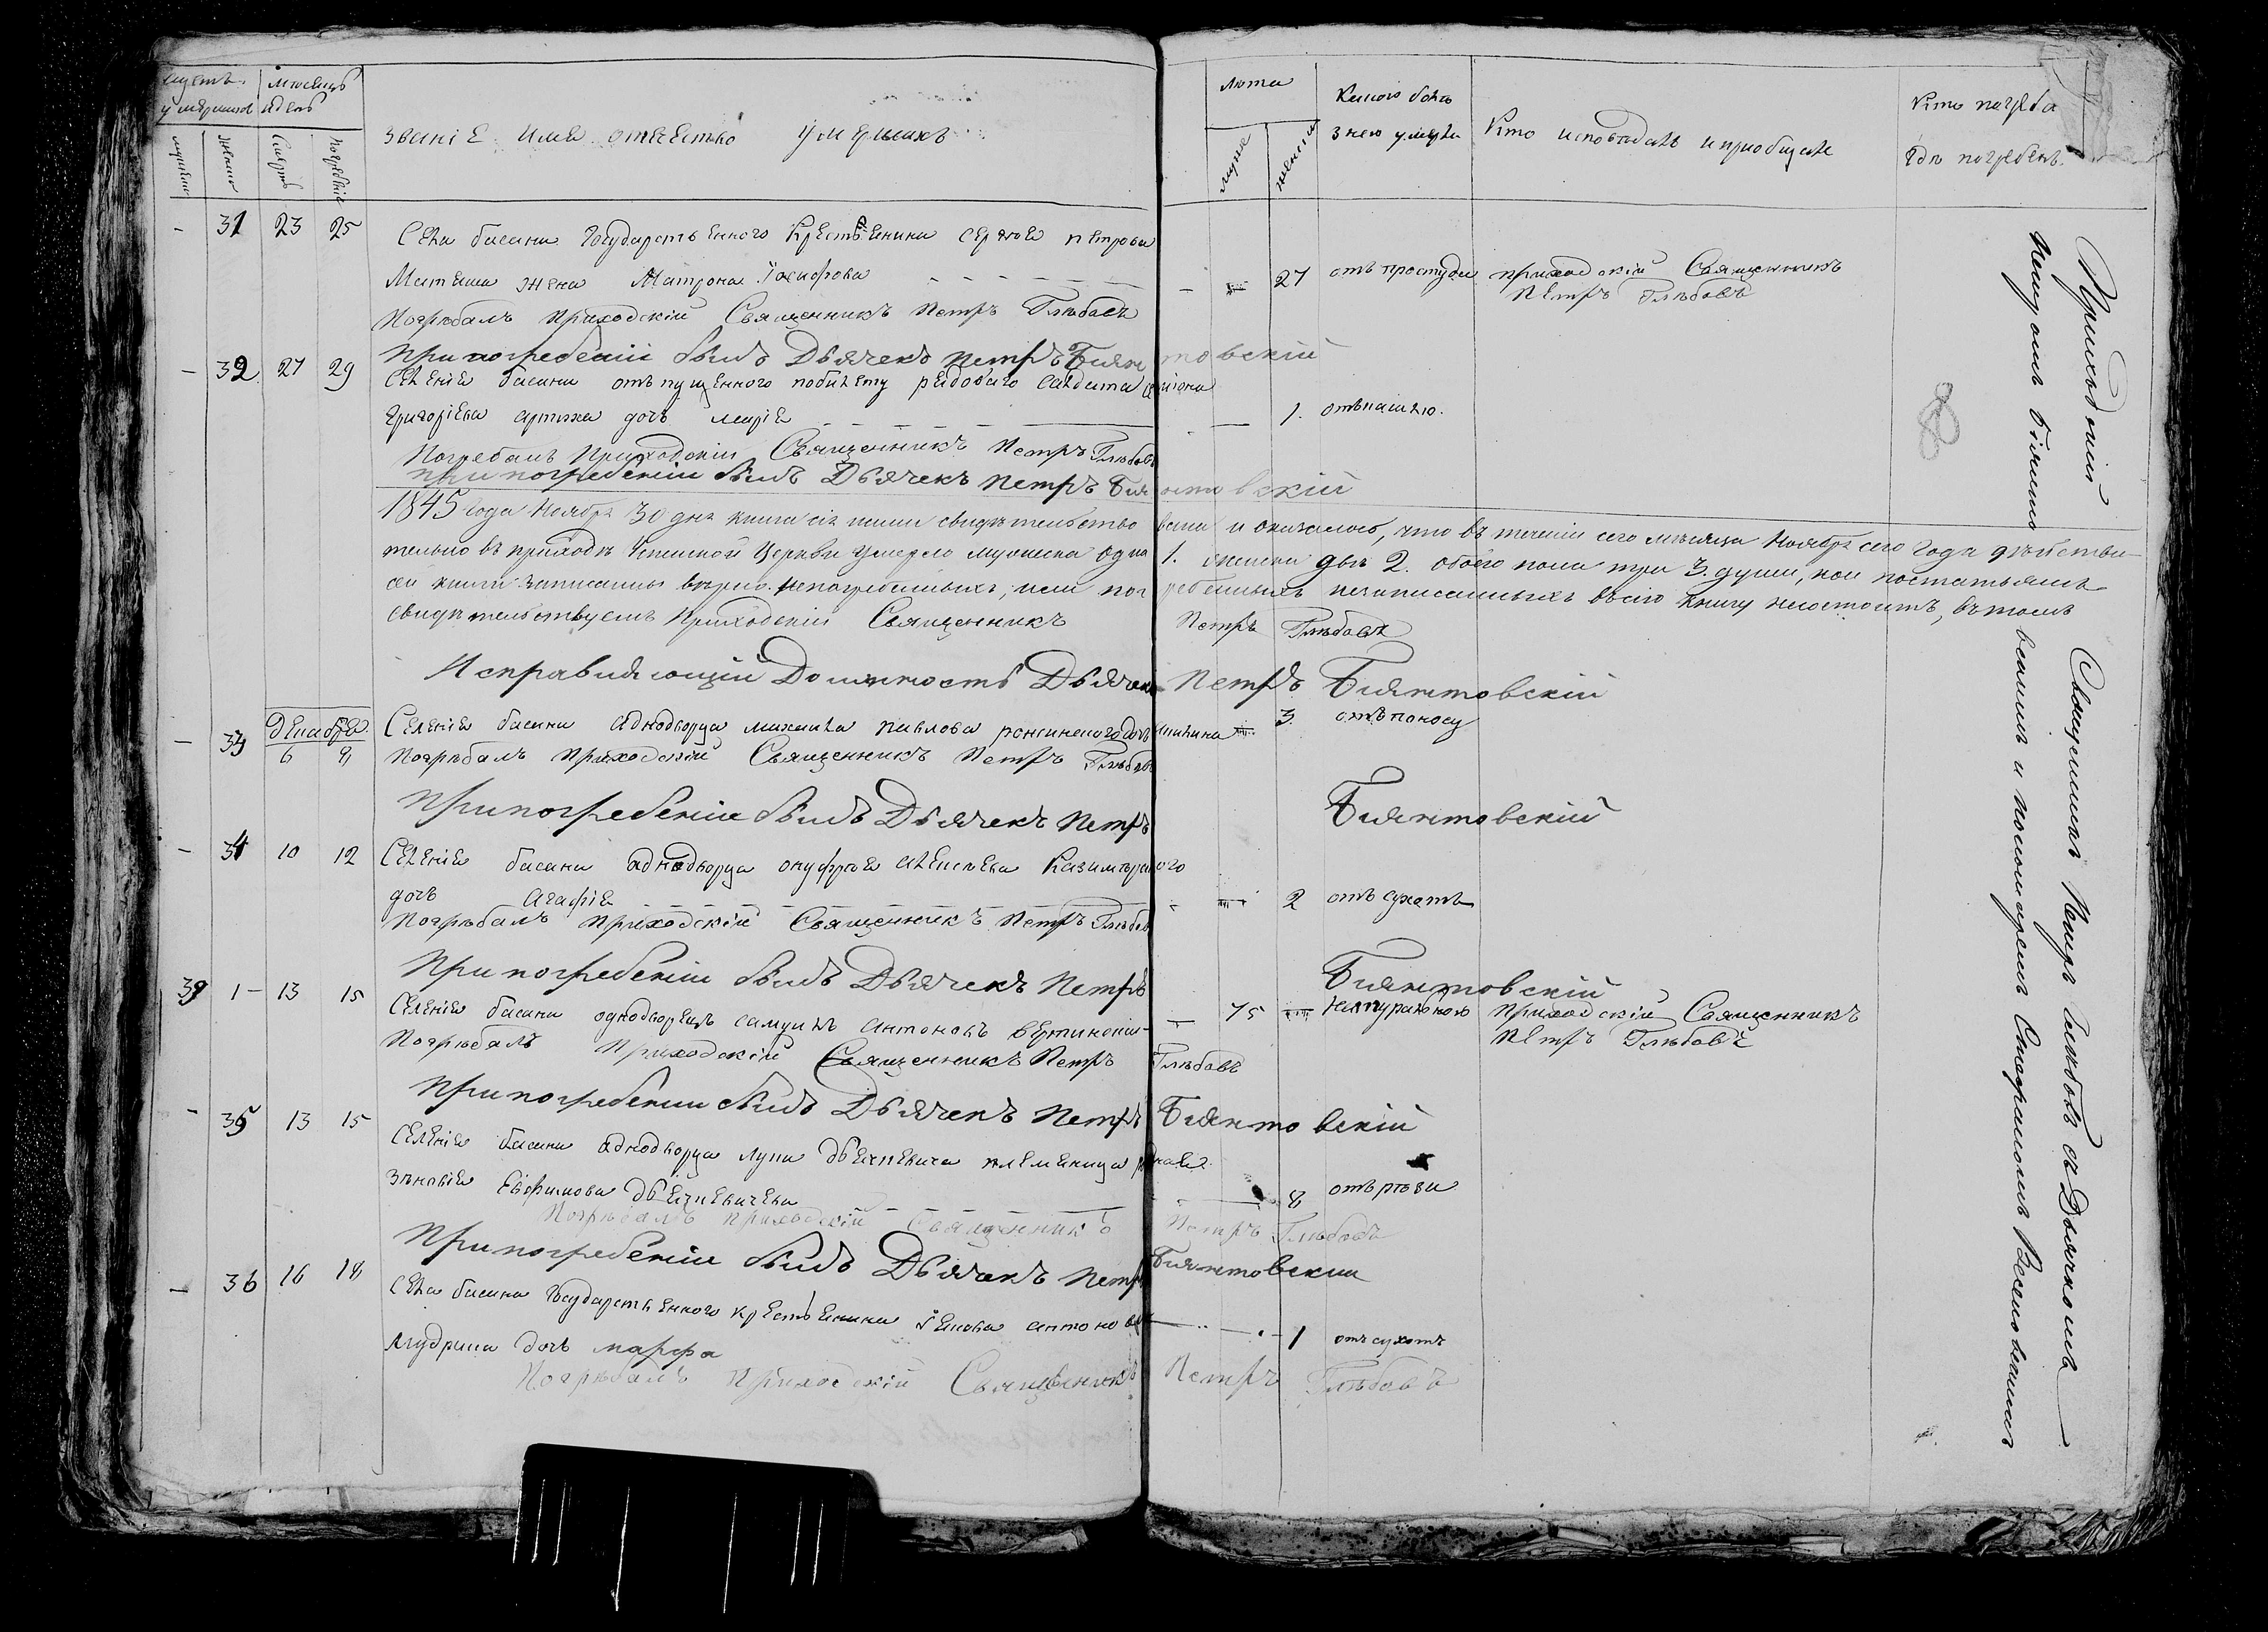 Щетъ умершихъ
мѣсяцъ и день
званіе имя отечество умершихъ
лѣта
Какою болѣзнею умерли
Кто исповѣдалъ и приобщалъ
Кто погреба
Гдѣ погребенъ.
мужеска
женска
Смерть
Погребеніе
мужеска
женска
- 31 23 25 Села басани Государственного Крестьенина сергѣя петрова
Матяша жена Матрона Іосифова - - 27 отъ простуди приходскій Священникъ
Петръ Глѣбовъ
Погрѣбалъ приходскій Священникъ Петръ Глѣбовъ
При погребеніи былъ Дьячекъ Петръ Биянтовскій
- 32 27 29 Селенія басани отъпущенного побилету рядоваго салдата
григорієва дочь марія - 1. отъкашлю.
Погребалъ Приходскій Священникъ Петръ Глѣбовъ
при погребеніи былъ Дьячекъ Петръ Биянтовскій
1845 года Ноября 30 дня книга сія нами свидѣтельствована и оказалось, что въ теченіи сего мѣсяца Ноября сего года дѣйстви-
тельно въ приходѣ Успенской Церкви умерло мужеска одна 1. женска двѣ 2. обоего пола три 3. души, кои постатьямъ
сей книги записаны вѣрно. непогребенныхъ, или погребенныхъ незаписанныхъ въ сію книгу несостоитъ, въ томъ
свидѣтельствуемъ Приходскій Священникъ Петръ Глѣбовъ
Исправляющій Должность Дьячка Петръ Биянтовскій
декабря
- 33 6 9 Селенія басани однодворца михаила павлова дочь 3. отъ поносу
Погрѣбалъ приходскій Священникъ Петръ Глѣбовъ
При погребеніи былъ Дьячекъ Петръ Биянтовскій
- 34 10 12 Селенія басани однодворца онуфрія алексѣева
дочь Агафія - 2 отъ сухотъ
Погрѣбалъ приходскій Священникъ Петръ Глѣбовъ
При погребеніи былъ Дьячекъ Петръ Биянтовскій
39 1 - 13 15 Селенія басани однодворецъ самуилъ антоновъ вертинскій - 75 - натуральною приходскій Священникъ
Петръ Глѣбовъ
Погрѣбалъ Приходскій Священникъ Петръ Глѣбовъ
При погребении былъ Дьячекъ Петръ Биянтовскій
- 35 13 15 Селенія басани однодворца луки племеница
зѣновія Евфимова 8 отъ рѣзи
Погрѣбалъ приходскій Священникъ Петръ Глѣбовъ
При погребеніи былъ Дьячекъ Петръ Биянтовский
- 36 16 18 Села басани Государственного крестьенина антонова
мудрика дочь марфа - 1 отъ сухотъ
Погрѣбалъ приходскій Священникъ Петръ Глѣбовъ
Приходскій Священникъ Петръ Глѣбовъ съ Дьячкомъ
Петромъ Біянтовскимъ и пономаремъ